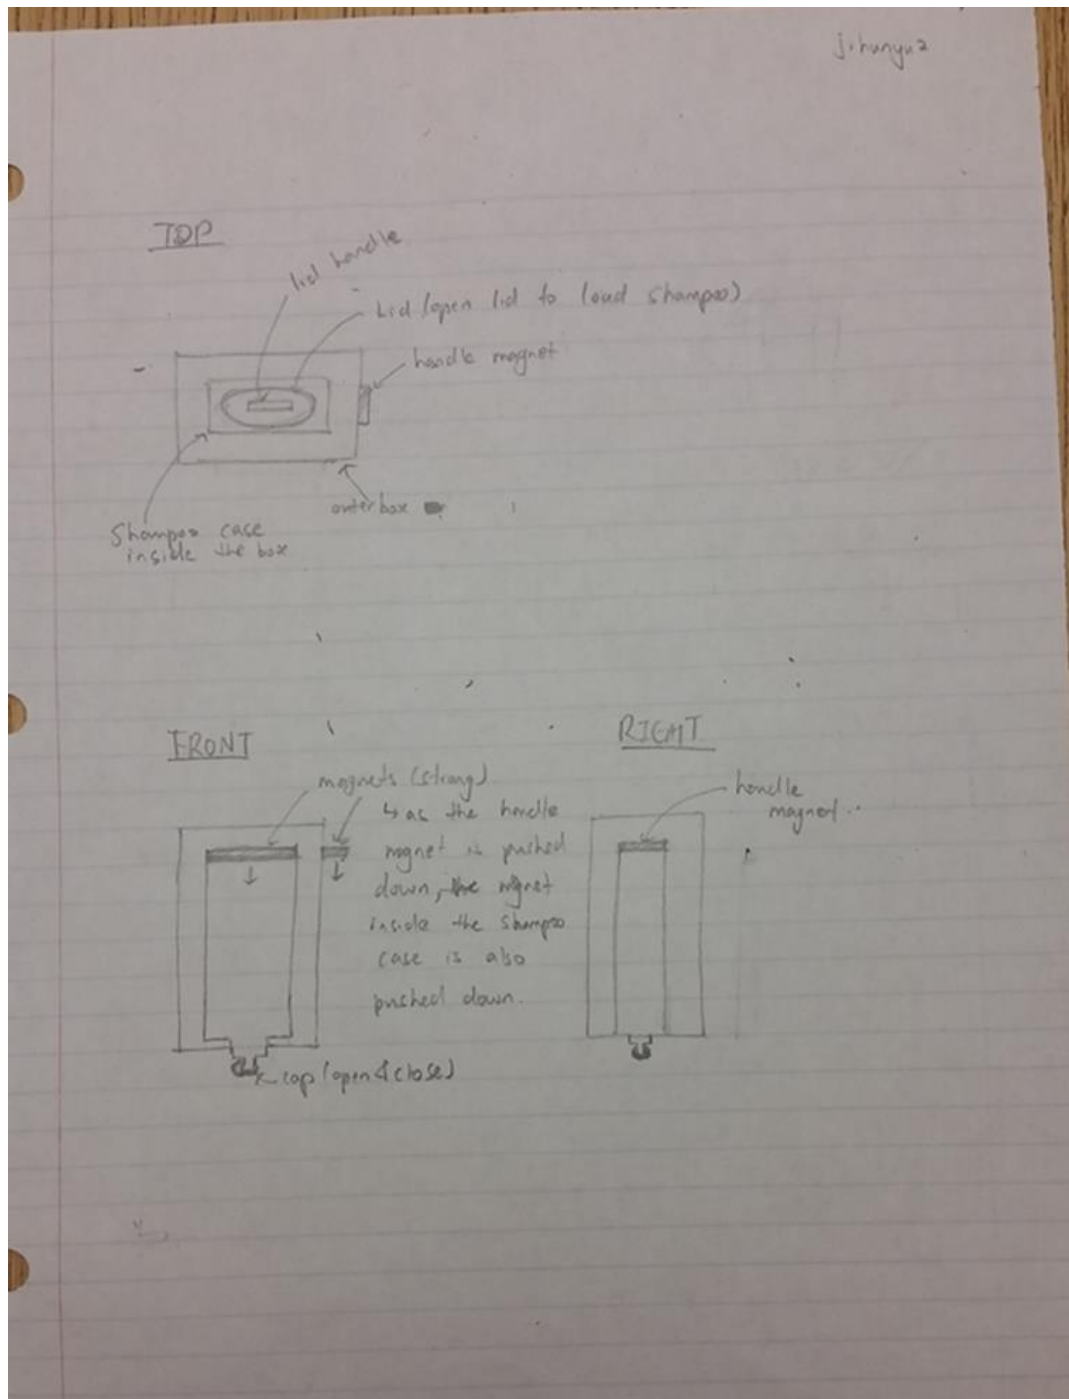 jihunyu2
TOP
lid handle
Lid (open lid to load shampoo)
handle magnet
outer box
Shampoo case
inside the box
FRONT
magnets (strong)
↳ as the handle
magnet is pushed
down, the mgnet
inside the shampoo
case is also
pushed down.
cap (open & close)
RIGHT
handle
magnet